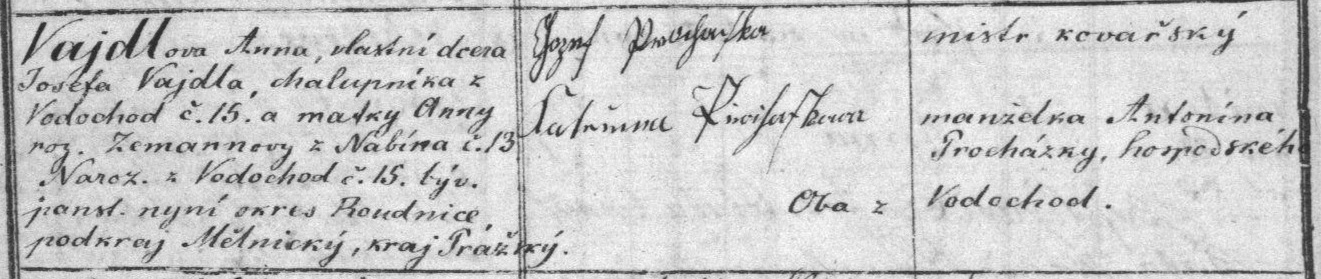 Vajdlova Anna, vlastní dcera
Josefa Vajdla, chalupníka z
Vodochod č. 15. a matky Anny
roz. Zemannovy z Nabína č. 13
Naroz. z Vodochod č. 15. býv.
panst. nyní okres Roudnice
podkraj Mělnický, kraj Prážský.
Jozef Prochaſka
Katerina
Oba z
mistr kovařský
manželka Antonína
Procházky, hospodského
Vodochod.